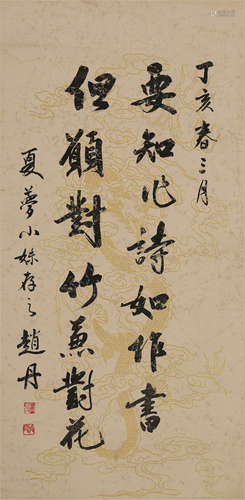 丁亥春三月
要知作詩如作書
但願對竹兼對花
夏夢小妹存之 趙丹